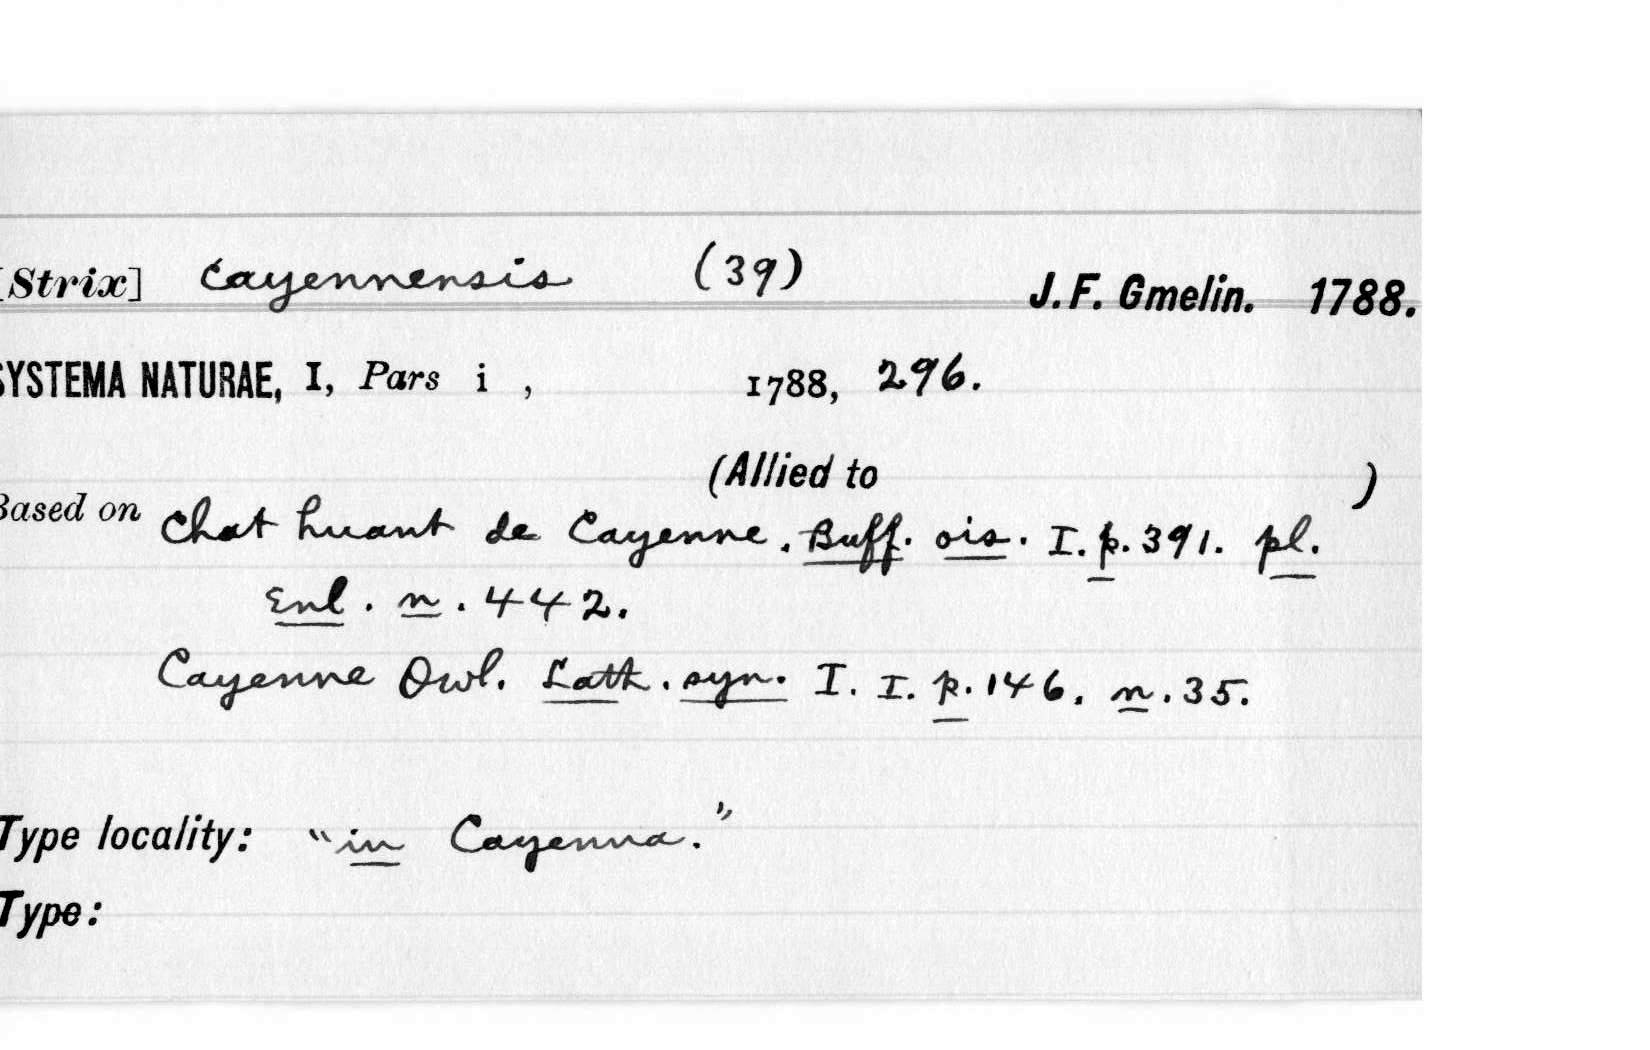 [Strix] Cayennensis (39) J. F. Gmelin. 1788.
SYSTEMA NATURAE, I, Pars i , 1788, 296.
(Allied to )
Based on Chat huant de Cayenne. Buff. ois. I. p. 391. pl.
Enl. n. 442.
Cayenne Owl. Lath. syn. I. I. p. 146. n. 35.
Type locality: "in Cayenna."
Type: